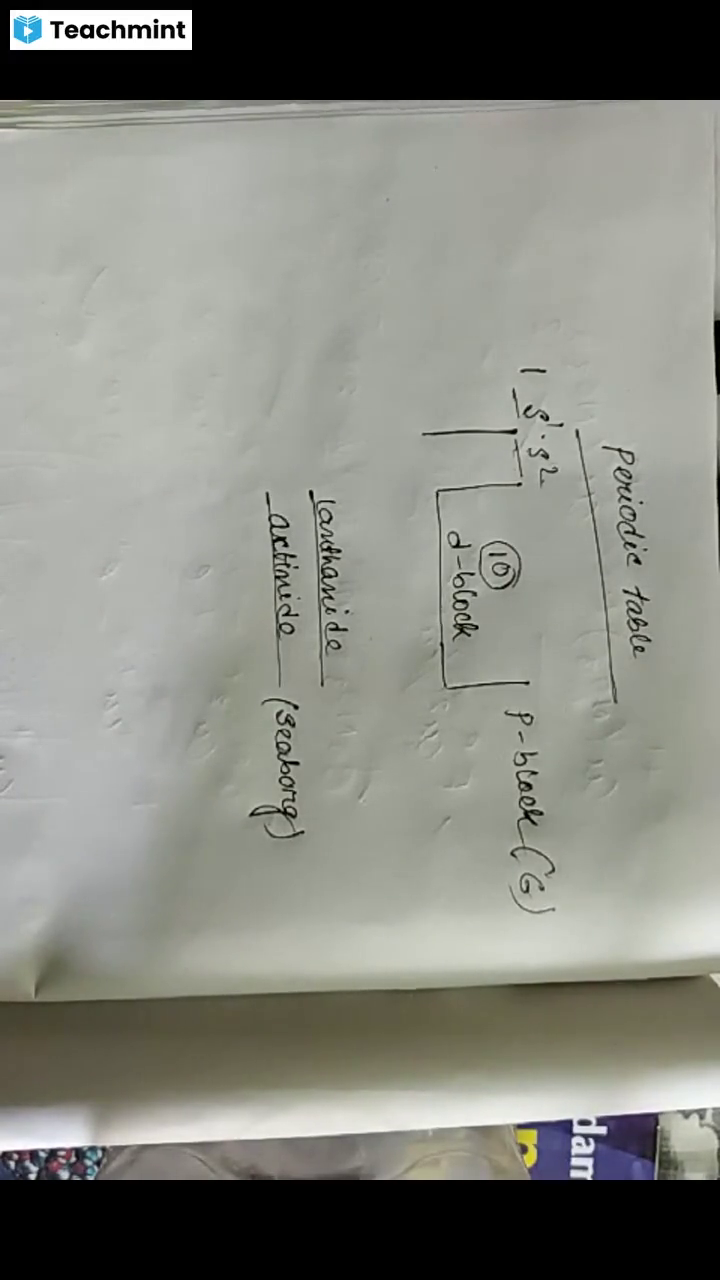 Teachmint
Periodic table
1 s¹ s²
p-block (6)
10
d-block
lanthanide
actinide (seaborg)
dam